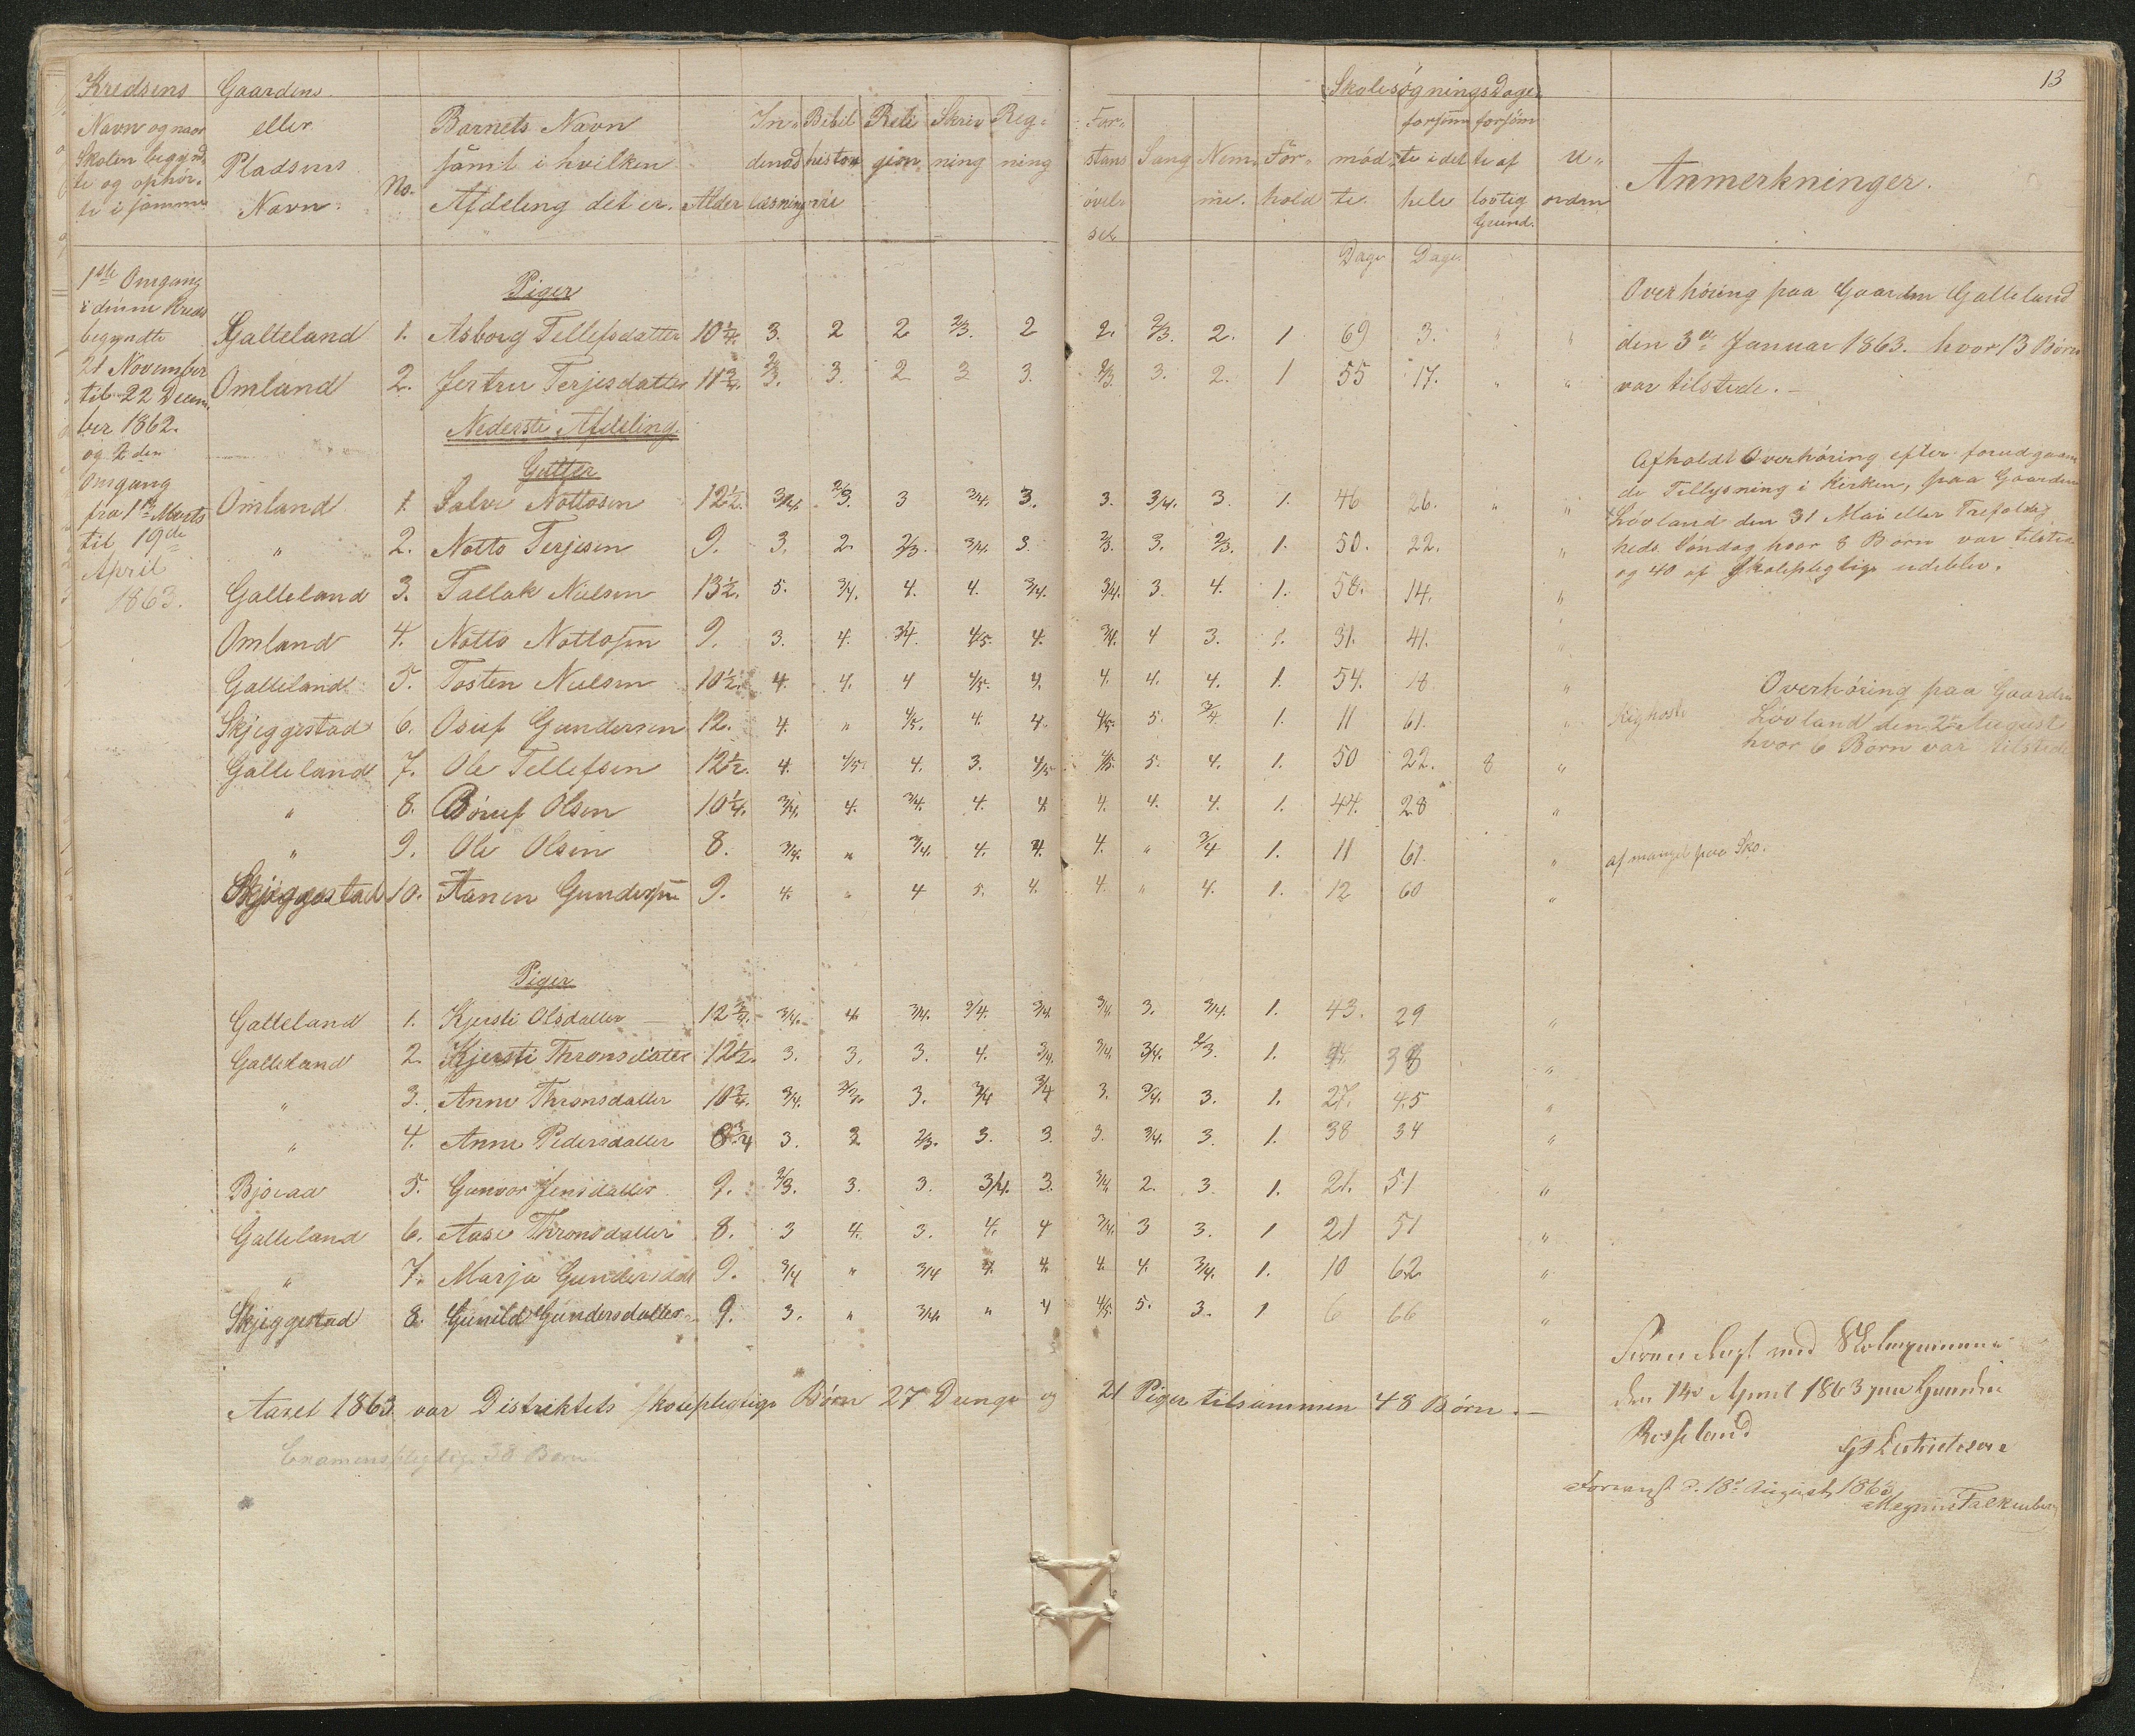 13
Kredsens Gaardens Skolesøgningsdage.
Navn og naar eller Barnets Navn In- Bibel Reli Skriv Reg- For- forsøm forsøm
Skolen begynd- Pladsens samt i hvilken denad histor gion ning ning stans Sang Nem- For- mød- te i det te af U- Anmerkninger.
te og ophør- Navn. No. Afdeling det er. Alder læsning rie øvel- me. hold te. hele lovlig orden
te i samme sel Grund.
Dage Dage
1ste Omgang
i denne Kreds
begyndte
21 November
til 22 Decem-
ber 1862.
og 2den
Omgang
fra 1ste Marts
til 19de
April
1863.
Piger
Galteland 1. Asborg Tellefsdatter 10 1/4. 3. 2 2 2/3. 2 2. 2/3. 2. 1 69 3. " "
Omland 2. Jertru Terjesdatter 11 3/4. 2/3. 3. 2 3 3. 2/3 3. 2. 1 55 17. " "
Nederste Afdeling.
Gutter
Omland 1. Salve Nottosen 12 1/2. 3/4. 2/3. 3 3/4. 3. 3. 3/4. 3. 1. 46 26. " "
" 2. Notto Terjesen 9. 3. 2. 2/3. 3/4. 3. 2/3. 3. 2/3. 1. 50. 22. "
Galleland 3. Tallak Nielsen 13 1/2. 5. 3/4. 4. 4. 3/4. 3/4. 3. 4. 1. 58. 14. "
Omland 4. Notto Nottosen 9. 3. 4. 3/4. 4/5. 4. 3/4. 4 3. 1. 31. 41. "
Galleland 5. Tosten Nielsen 10 1/2. 4. 4. 4 4/5. 4. 4. 4. 4. 1. 54. 18 "
Skjeggestad 6. Osuf Gundersen 12. 4. " 4/5. 4. 4. 4/5. 5. 3/4 1. 11 61. " Kighoste
Galleland 7. Ole Tellefsen 12 1/2. 4. 4/5. 4. 3. 4/5 4/5. 5. 4. 1. 50 22. 8 "
" 8. Børuf Olsen 10 1/4. 3/4. 4. 3/4. 4. 4 4. 4. 4. 1. 44. 28 "
" 9. Ole Olsen 8. 3/4. " 3/4. 4. 4. 4. " 3/4 1. 11 61. " af mangel paa Sko.
Skjeggestad 10. Aanen Gundersen 9. 4. " 4 5. 4. 4. " 4. 1. 12 60 "
Piger
Galleland 1. Kjersti Olsdatter 12 3/4. 3/4. 4. 3/4. 3/4. 3/4. 3/4. 3. 3/4. 1. 43. 29 "
Galleland 2. Kjersti Thronsdatter 12 1/2. 3. 3. 3. 4. 3/4. 3/4. 3/4. 2/3. 1. 38 "
" 3. Anne Thronsdatter 10 3/4. 3/4. 3. 3/4 3/4 3. 3/4. 3. 1. 27. 45 "
" 4. Anne Pedersdatter 8 3/4 3. 3 2/3. 3. 3. 3. 3/4. 3. 1. 38 34 "
Bjoraa 5. Gunvor Jensdatter 9. 2/3. 3. 3. 3/4. 3. 3/4 2. 3. 1. 21. 51 "
Galleland 6. Aase Thronsdatter 8. 3 4. 3. 4. 4 3/4. 3 3. 1 21 51 "
" 7. Marja Gundersdatt 9. 3/4 " 3/4 4. 4. 4. 4. 3/4. 1. 10 62 "
Skjeggestad 8. Gunild Gundersdatter 9. 3. " 3/4. " 4 4/5. 5. 3. 1 6 66 "
Overhøring paa Gaarden Galleland
den 3de Januar 1863. hvor 13 Børn
var tilstede.
Afholdt Overhøring efter forudgaaen
de Tillysning i Kirken, paa Gaarden
Løvland den 31 Mai eller Trefoldig
heds Søndag hvor 8 Børn var tilstede
og 40 af Skolepligtige udeblev.
Overhøring paa Gaarden
Løvland den 2den August
hvor 6 Børn var tilstede
Aaret 1863 var Distriktets skolepligtige Børn 27 Drenge og 21 Piger tilsammen 48 Børn.
Examenspligtige 38 Børn
den 14 April 1863 paa Gaarden
Rosseland
Forevist d. 18de August 1863
Magnus Falkenberg